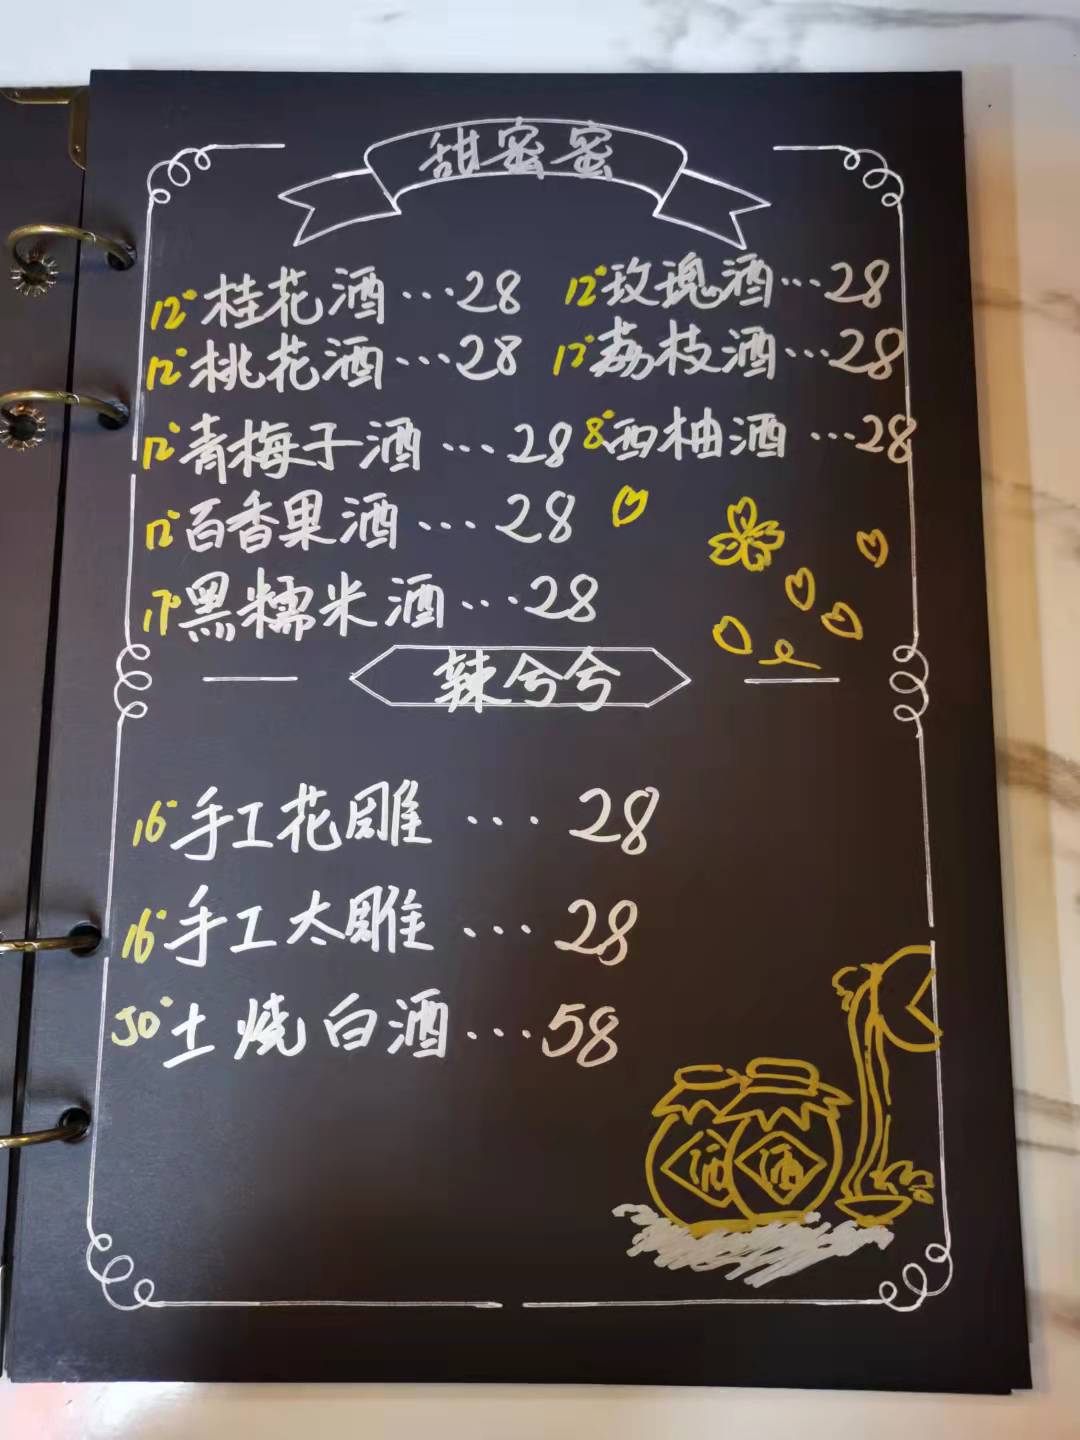 甜蜜蜜
12°桂花酒…28 12°玫瑰酒…28
12°桃花酒…28 12°荔枝酒…28
12°青梅子酒…28 8°西柚酒…28
12°百香果酒…28
17°黑糯米酒…28
辣兮兮
16°手工花雕…28
16°手工太雕…28
50°土烧白酒…58
酒 酒